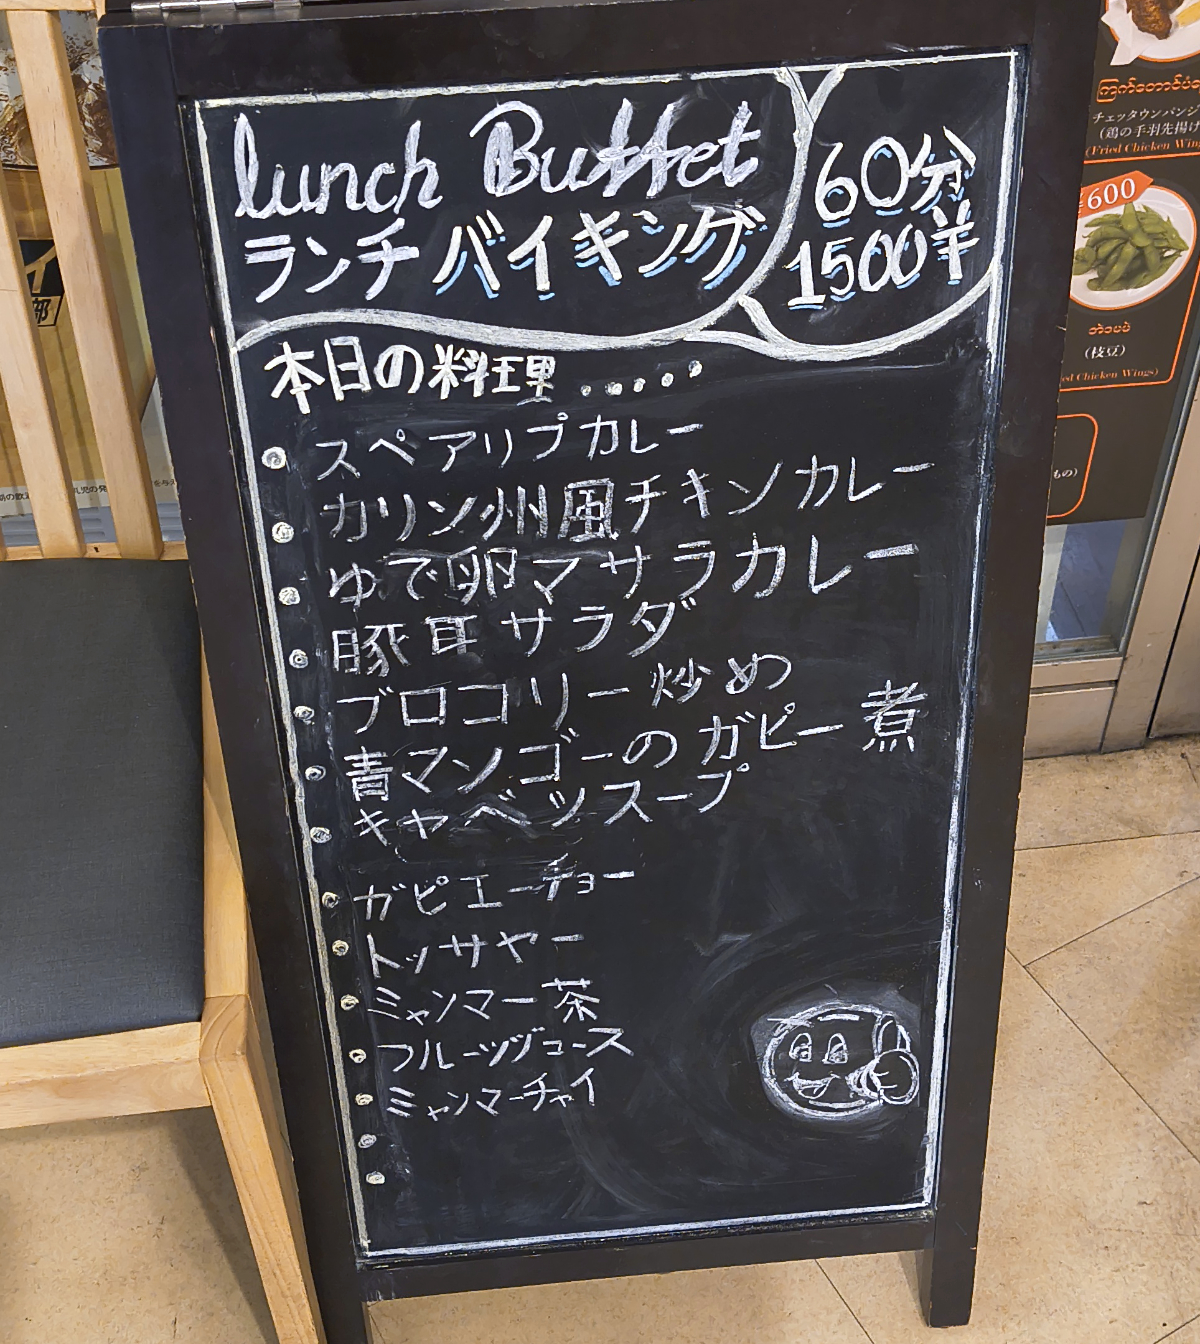 lunch Buffet
ランチバイキング
60分
1500¥
本日の料理.....
スペアリブカレー
カリン州風チキンカレー
ゆで卵マサラカレー
豚耳サラダ
ブロコリー炒め
青マンゴーのガピー煮
キャベツスープ
ガピエーチョー
トッサヤー
ミャンマー茶
フルーツジュース
ミャンマーチャイ
チェッタウンパンジ
(鶏の手羽先揚げ
(Fried Chicken Wing
¥600
(枝豆)
ed Chicken Wings)
もの)